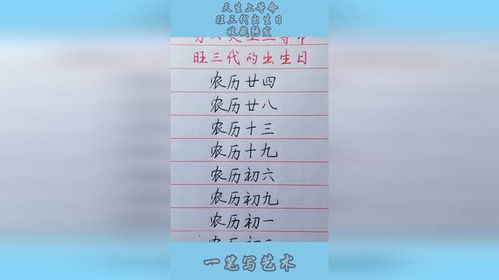 天生上等命
旺三代出生日
收藏转发
旺三代的出生日
农历廿四
农历廿八
农历十三
农历十九
农历初六
农历初九
农历初一
一笔写艺术